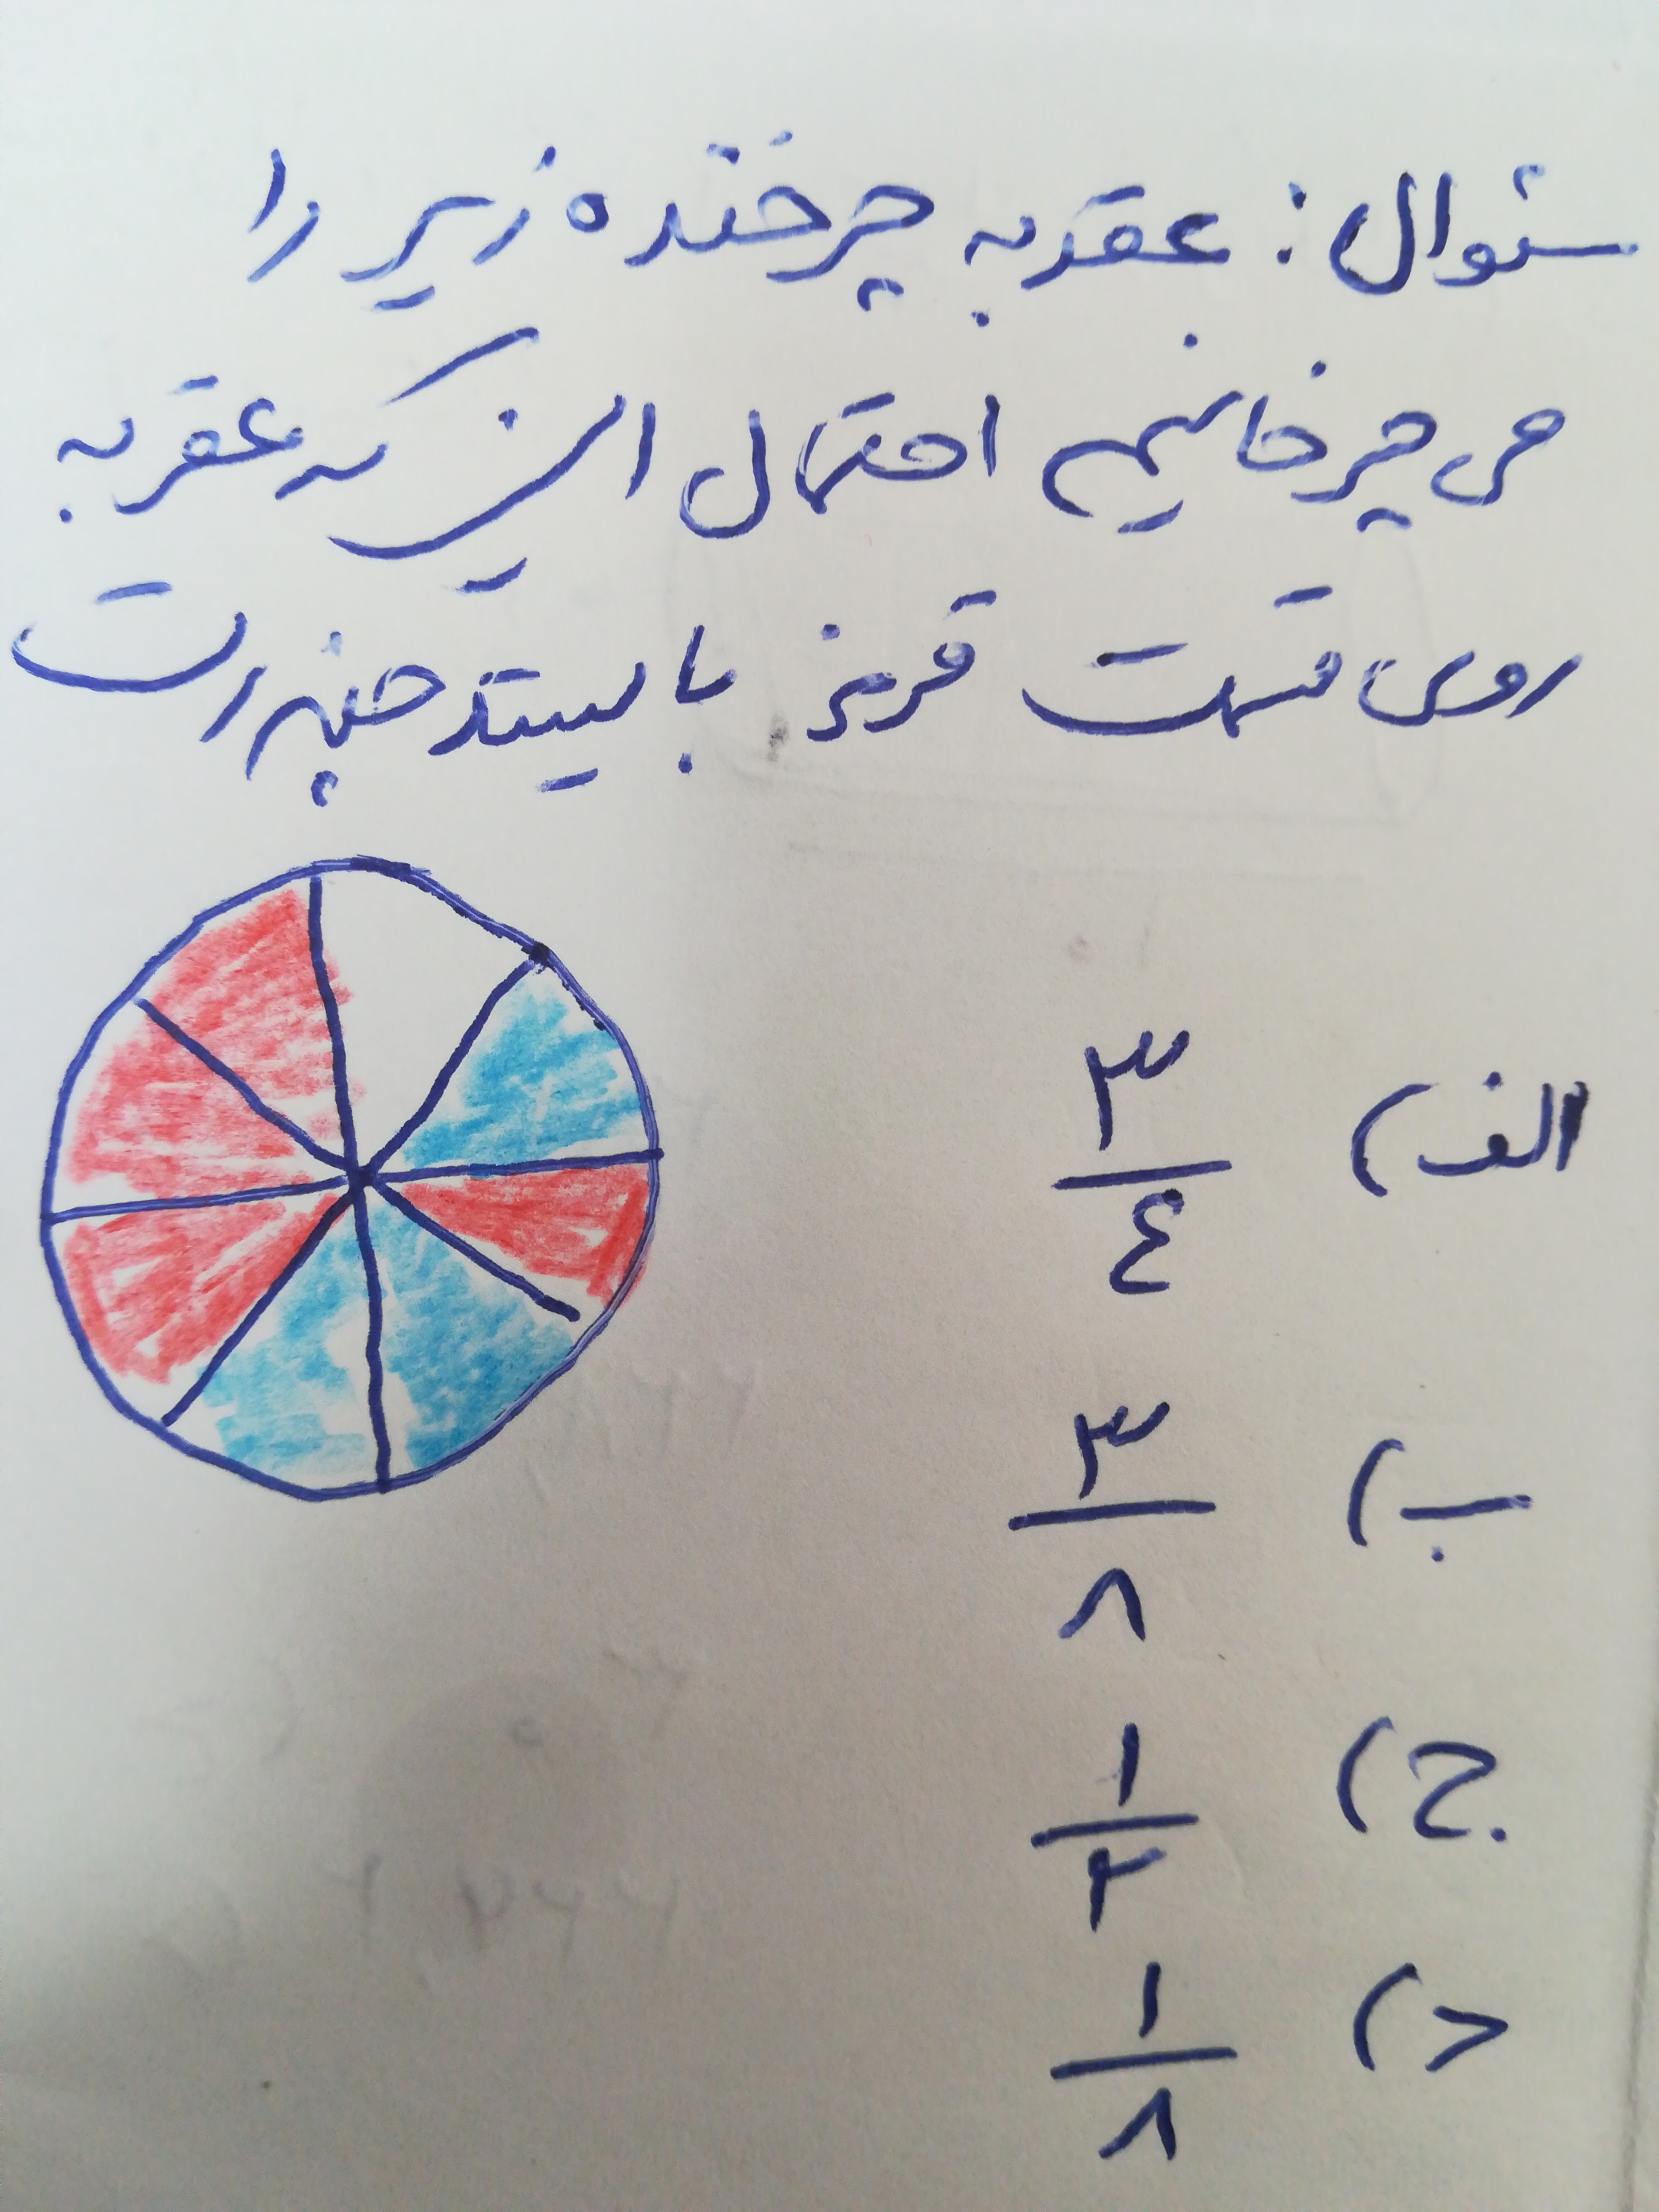 سئوال: عقربه چرخنده زیر را
می چرخانیم احتمال این که عقربه
روی قسمت قرمز بایستد چقدر است
الف) ۳/٤
ب) ۳/۸
ج) ۱/۲
د) ۱/۸